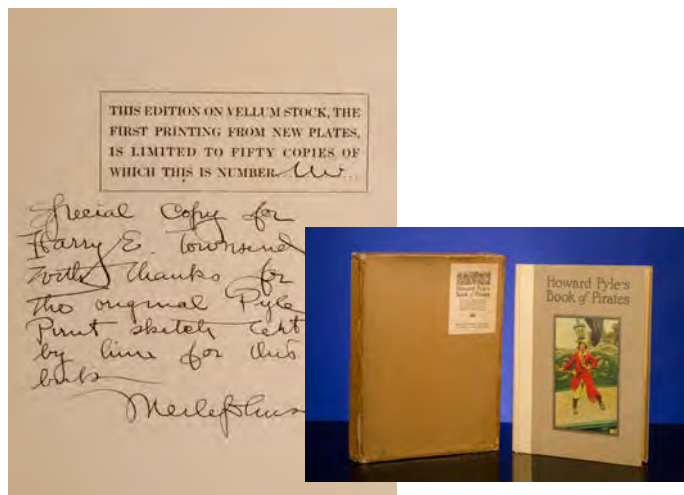 THIS EDITION ON VELLUM STOCK, THE
FIRST PRINTING FROM NEW PLATES,
IS LIMITED TO FIFTY COPIES OF
WHICH THIS IS NUMBER
Special Copy for
Harry E. Townsend
with thanks for
the original Pyle
sketch
by him for this
Merle Johns
Howard Pyle's
Book of Pirates
Howard Pyle's
Book of Pirates